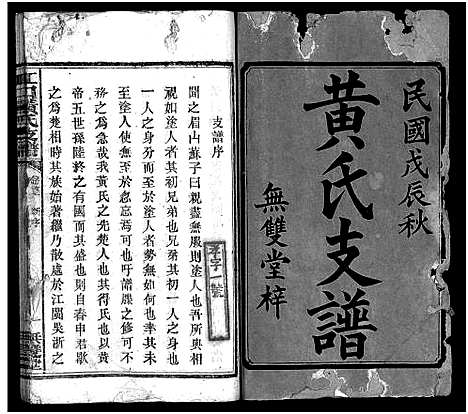 民國戊辰秋
黃氏支譜
無雙堂梓
支譜序
聞之眉山蘇子曰親盡無服則塗人也吾所與相
視如塗人者其初兄弟也兄弟其初一人之身也
一人之身分而至於塗人者勢無如何也幸其未
至塗人使無至於忽忘焉可也吁譜牒之修可不
務之為急哉我黃氏之先楚人也其得氏也以黃
帝五世孫陸終之有國而其盛也則自春申君歇
之為楚相時其族始著繼乃散處於江閩吳浙之
字一號
黃氏支譜